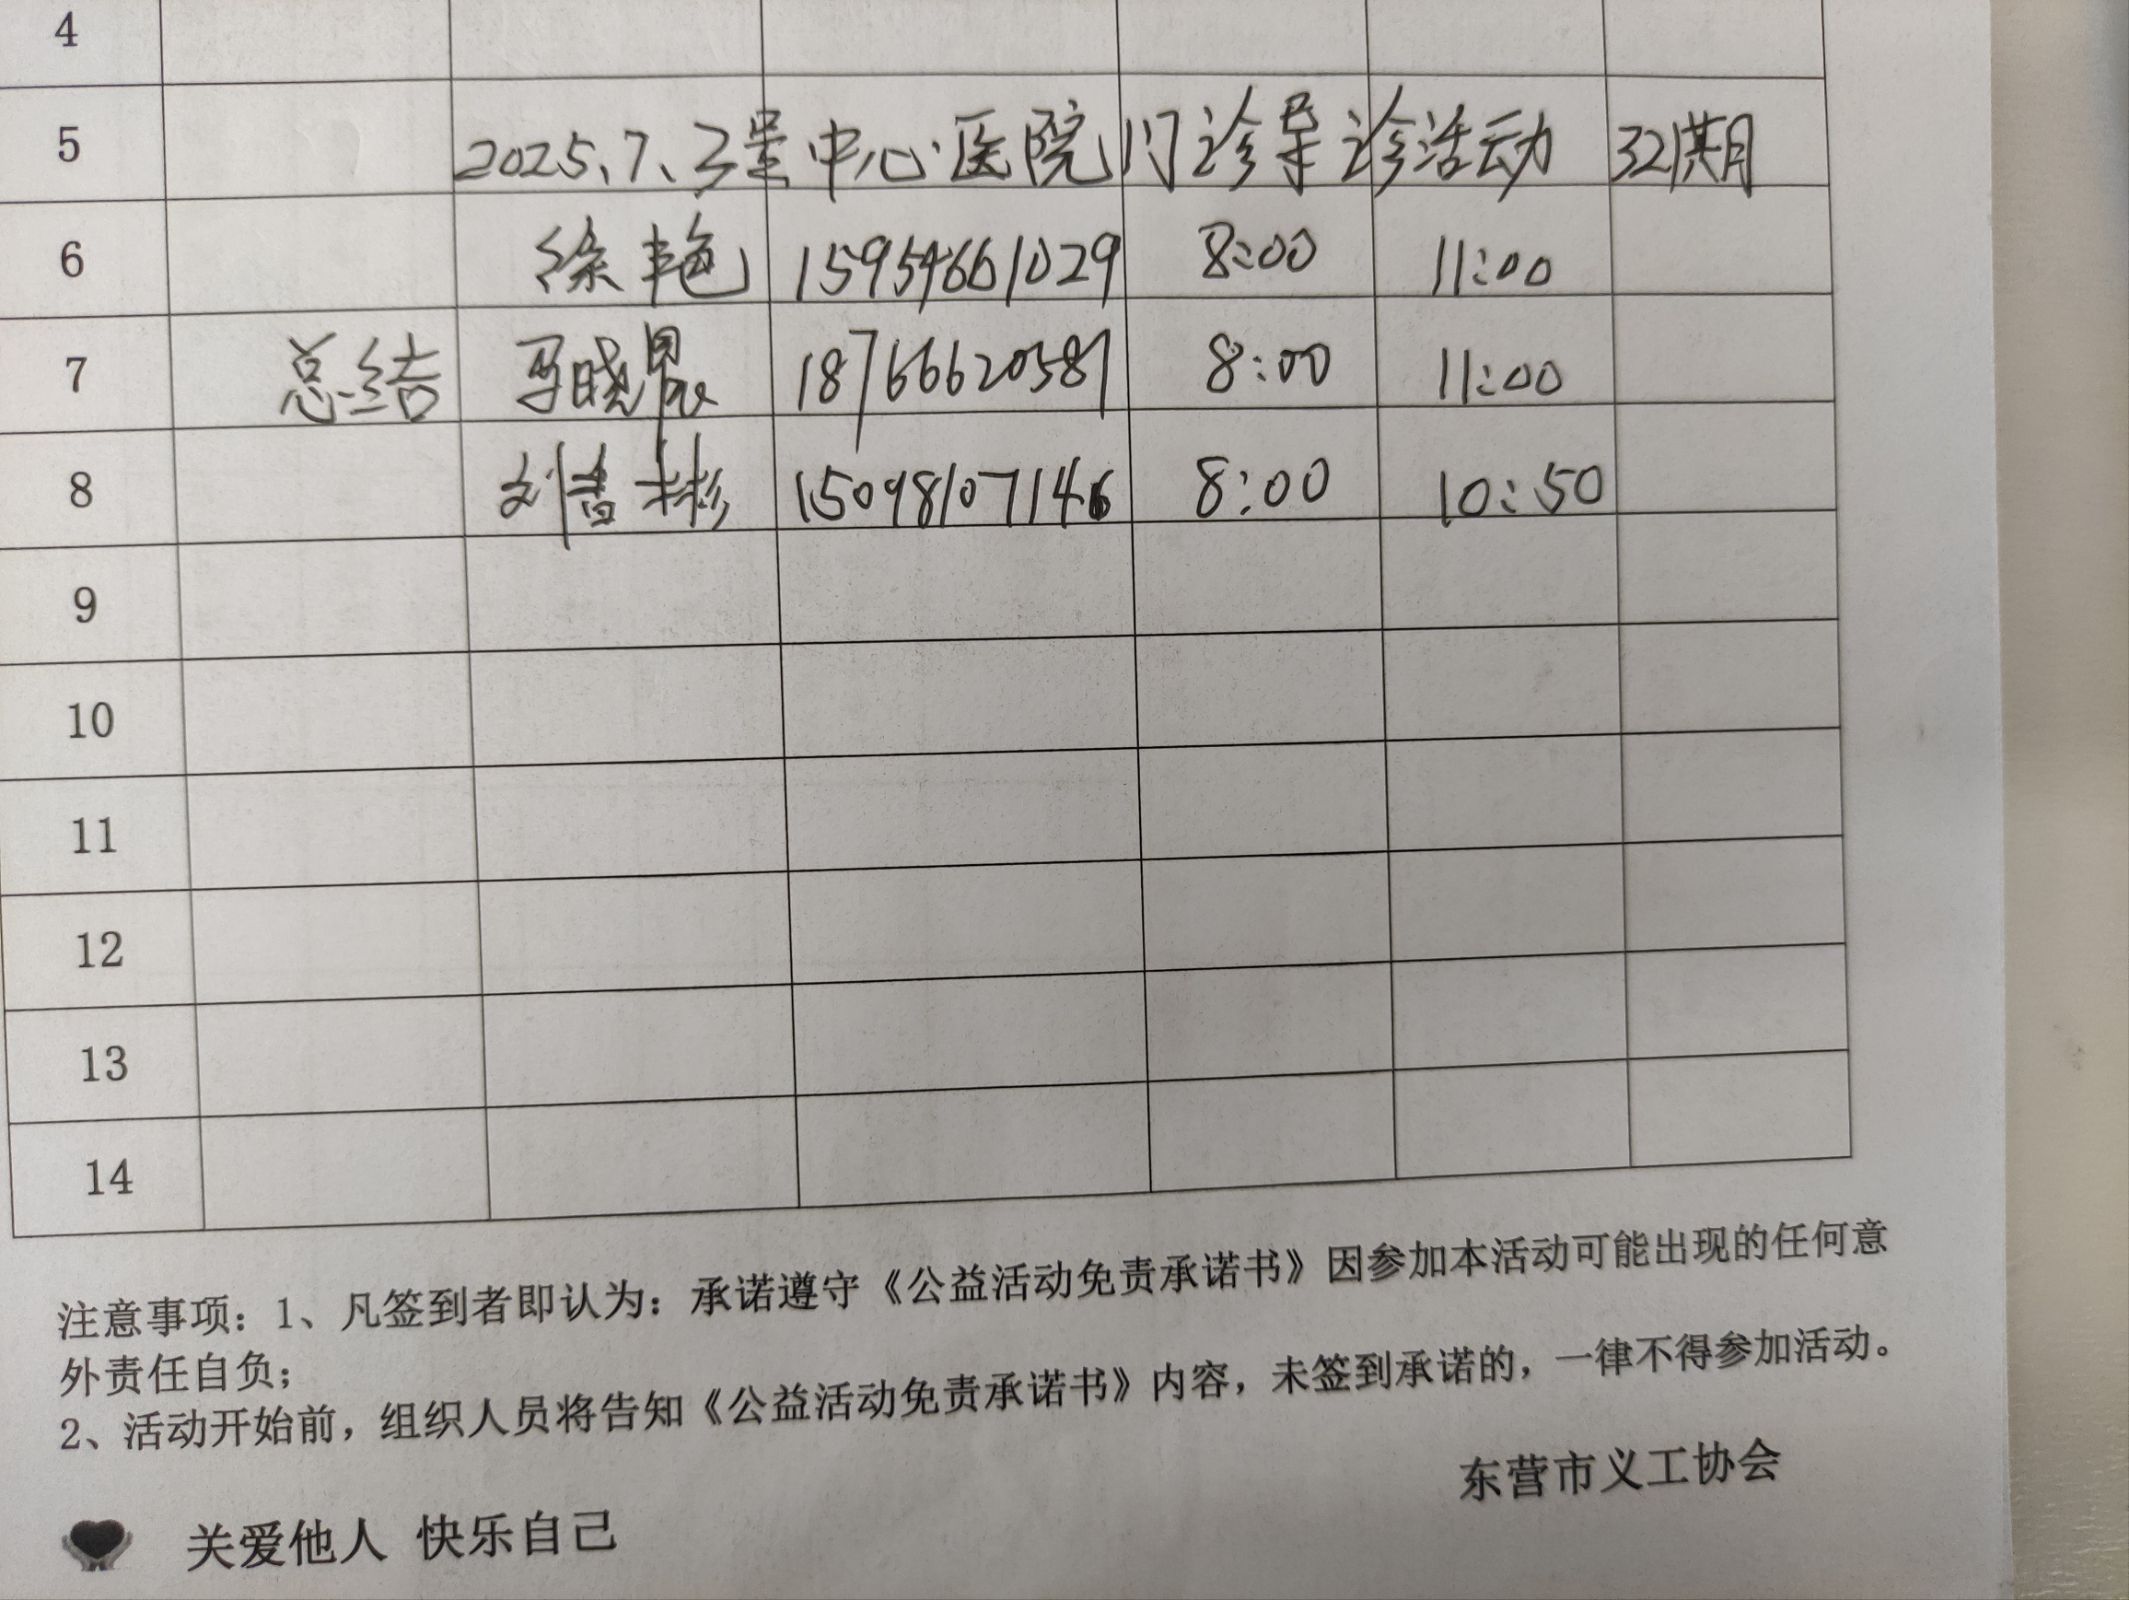 4
5 2025、7、3号 中心医院门诊导诊活动 32期
6 徐艳 15954661029 8:00 11:00
7 总结 马晓晨 18766620587 8:00 11:00
8 刘 彬 15098107146 8:00 10:50
9
10
11
12
13
14
注意事项：1、凡签到者即认为：承诺遵守《公益活动免责承诺书》因参加本活动可能出现的任何意
外责任自负；
2、活动开始前，组织人员将告知《公益活动免责承诺书》内容，未签到承诺的，一律不得参加活动。
东营市义工协会
关爱他人 快乐自己